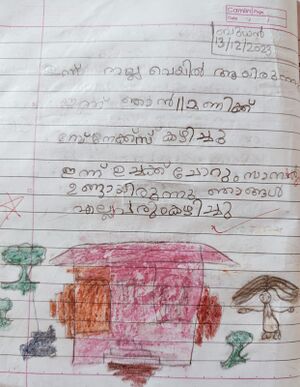 Camlin
Date
ബുധൻ
13/12/2023
ഇന്ന് നല്ല വെയിൽ ആയിരുന്നു
ഇന്ന് ഞാൻ 11 മണിക്ക്
കഴിച്ചു
ഇന്ന് ഉച്ചക്ക് ചോറും സാമ്പാർ
ഉണ്ടായിരുന്നു ഞങ്ങൾ
എല്ലാവരും കഴിച്ചു